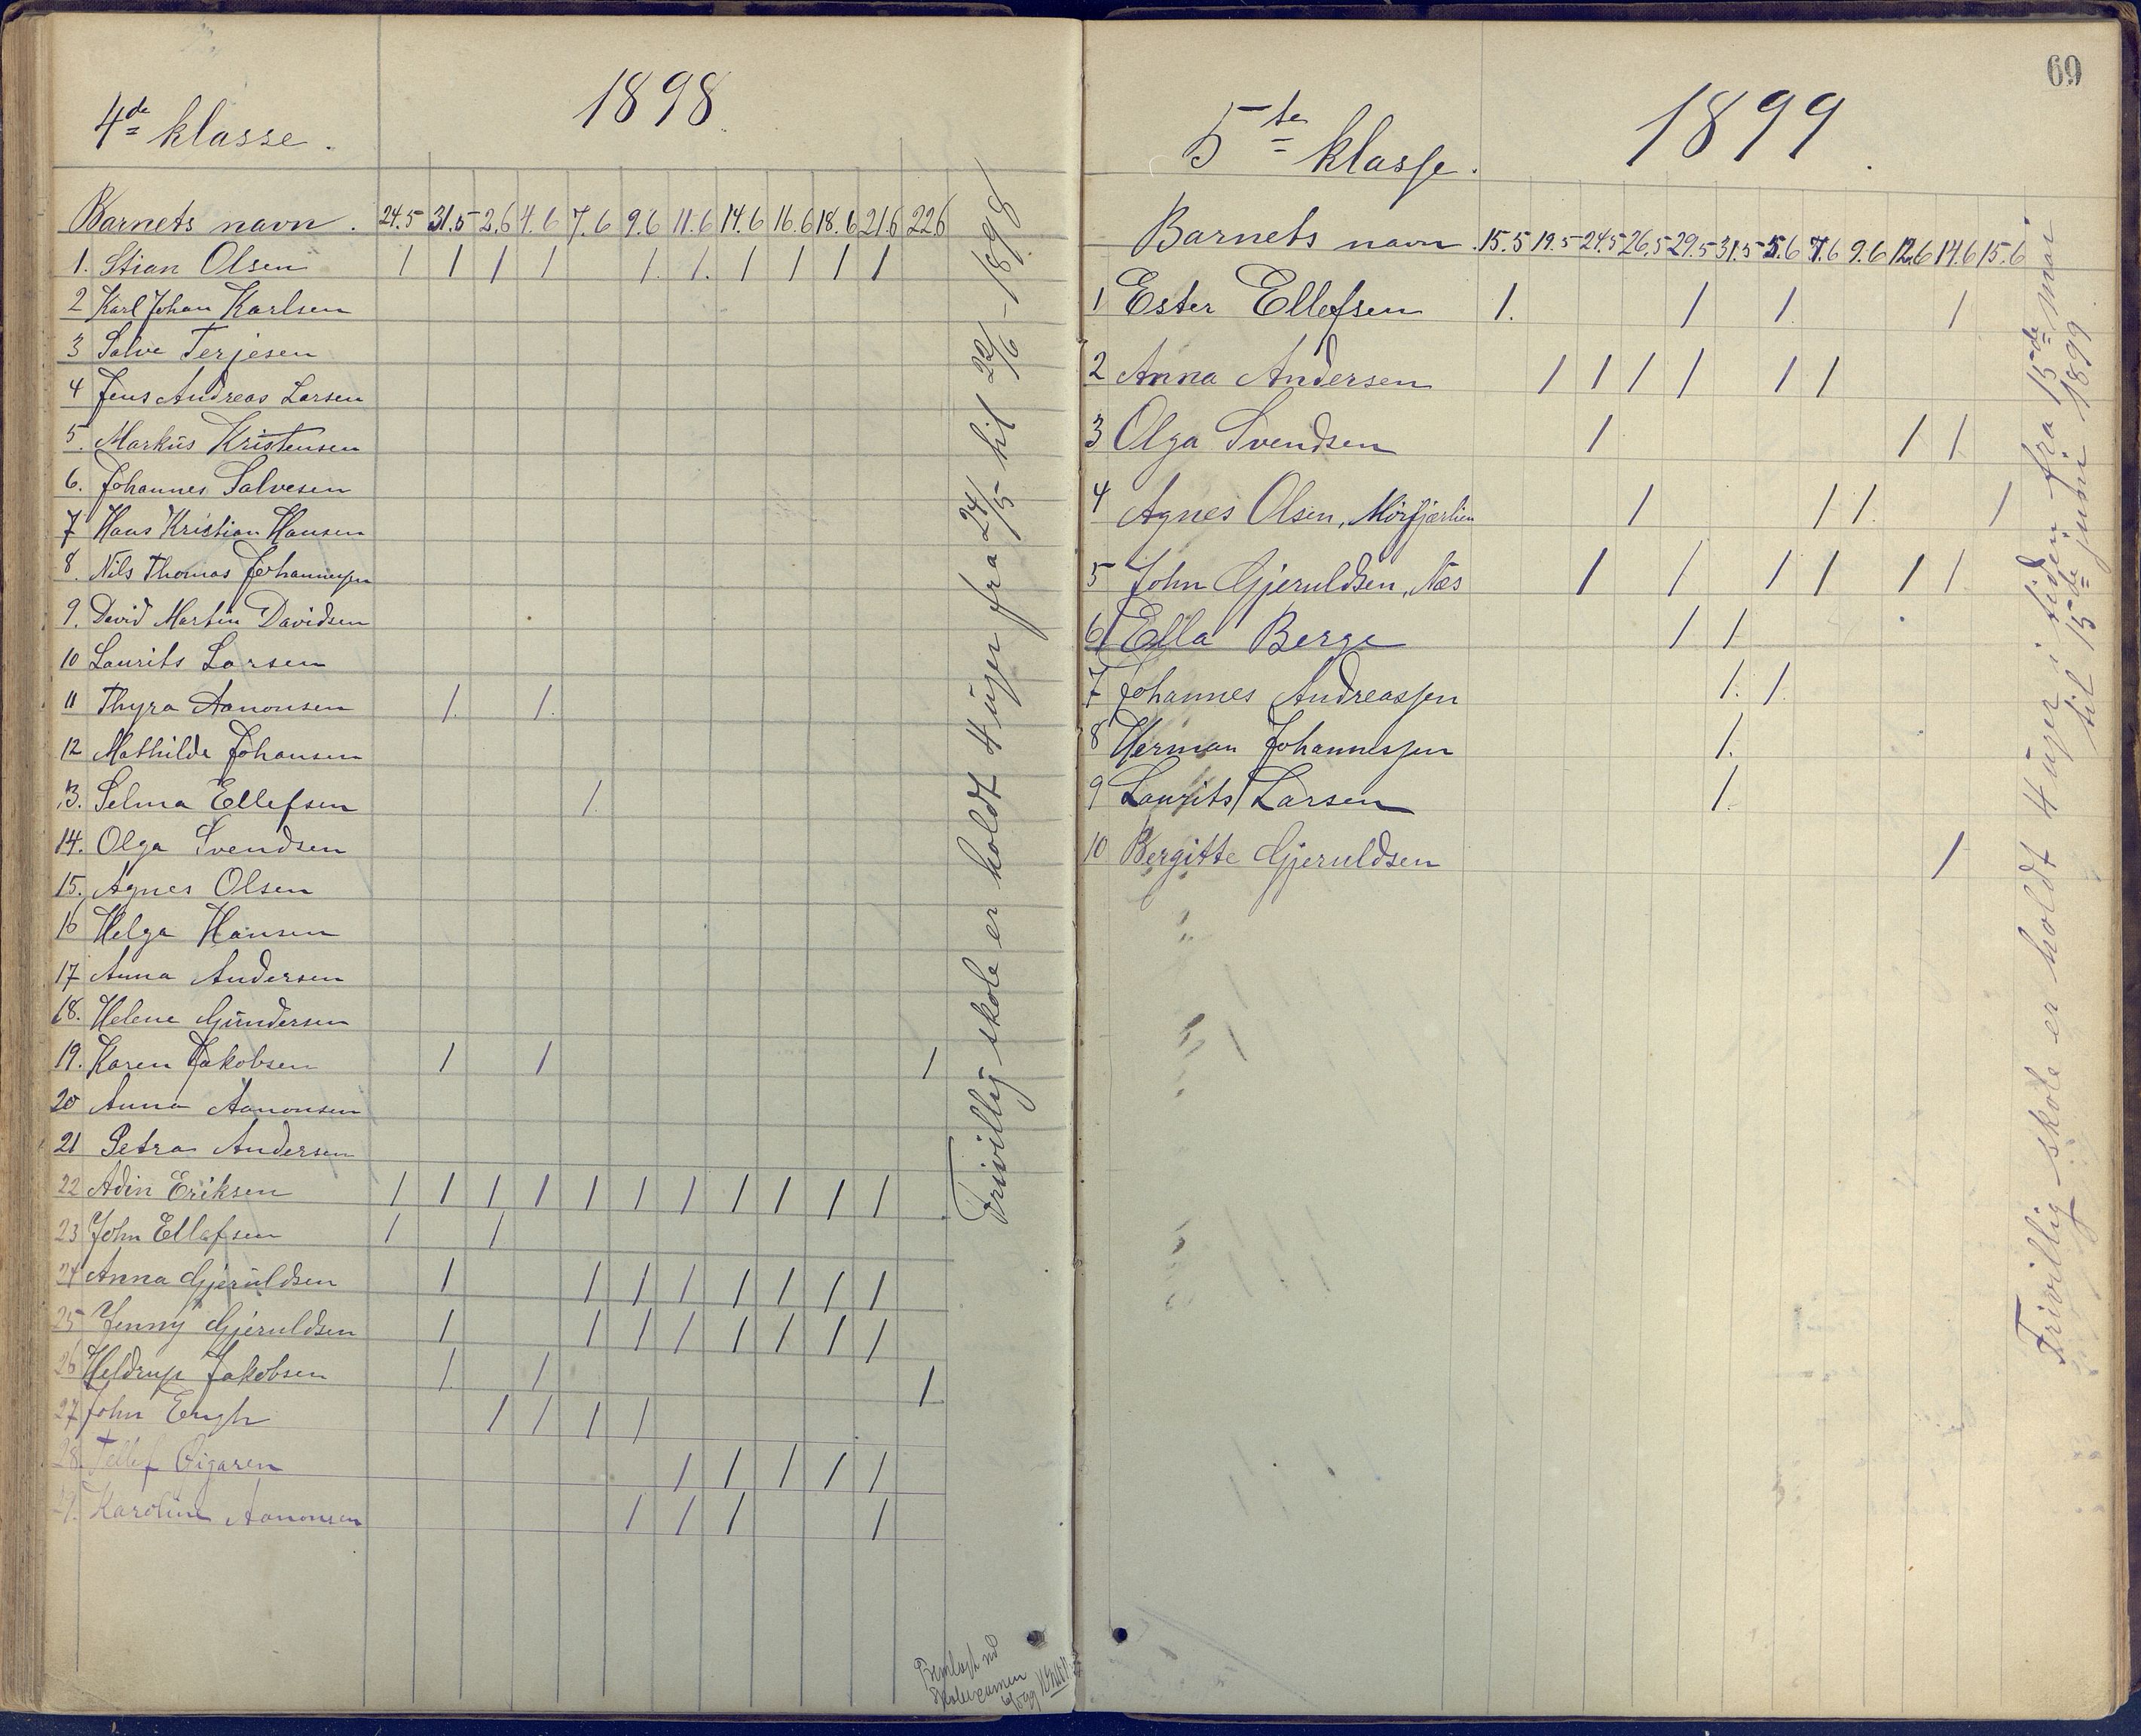 4de klasse.
1898
Barnets navn. 24.5 31.5 2.6 4.6 7.6 9.6 11.6 14.6 16.6 18.6 21.6 22.6
1. Stian Olsen / / / / / / / / / /
2 Karl Johan Karlsen
3 Salve Terjesen
4 Jens Andreas Larsen
5. Markus Kristensen
6. Johannes Salvesen
7 Hans Kristian Hansen
8. Nils Thomas Johannessen
9. David Martin Davidsen
10 Laurits Larsen
11 Thyra Aanonsen / /
12 Mathilde Johansen
13. Selma Ellefsen /
14. Olga Svendsen
15. Agnes Olsen
16 Helga Hansen
17 Anna Andersen
18. Helene Gundersen
19. Karen Jakobsen / / /
20 Anna Aanonsen
21 Petra Andersen
22 Adin Eriksen / / / / / / / / / / /
23 John Ellefsen / /
24 Anna Gjeruldsen / / / / / / / /
25 Jenny Gjeruldsen / / / / / / / /
26 Heldrup Jakobsen / / /
27 John Engh / / / /
28. Tellef / / / / /
29. Karoline Aanonsen / / / /
Frivillig skole er holdt 4 uger fra 24/5 til 22/6 - 1898
69
5te klasse.
1899
Barnets navn 15.5 19.5 24.5 26.5 29.5 31.5 5.6 7.6 9.6 12.6 14.6 15.6
1 Ester Ellefsen / / / /
2 Anna Andersen / / / / / /
3 Olga Svendsen / / /
4 Agnes Olsen, / / / /
5 John Gjeruldsen, Næs / / / / / /
6 Ella Berge / /
7 Johannes Andreassen / /
8 Herman Johannessen /
9 Laurits Larsen /
10 Bergitte Gjeruldsen /
Frivillig skole er holdt 4 uger i tiden fra 15de mai
til 15de juni 1899